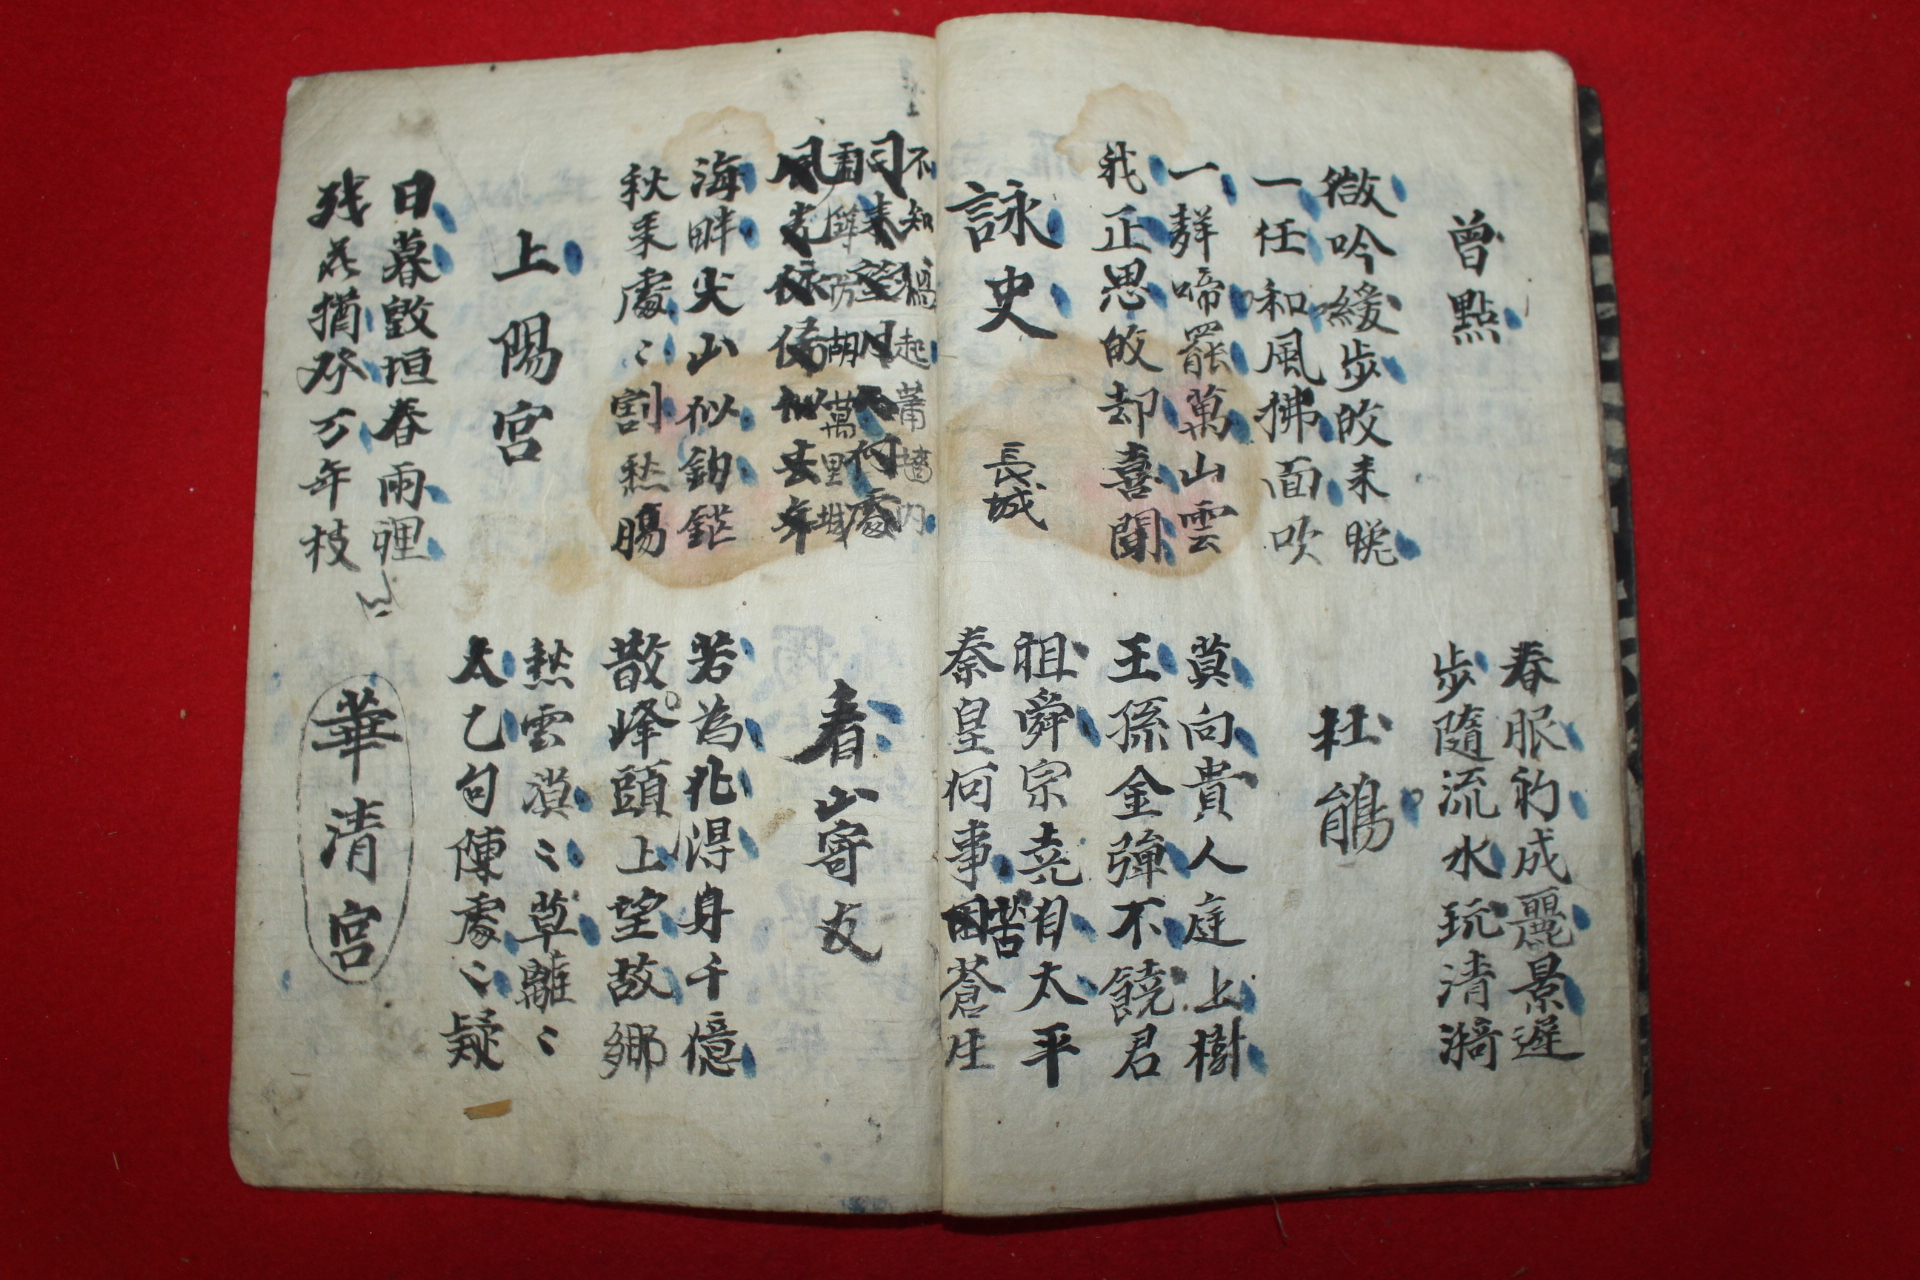 曾點
春服初成麗景遲
步隨流水玩清漪
微吟緩步皈来晩
一任和風拂面吹
杜鵑
一聲啼罷萬山雲
我正思皈却喜聞
莫向貴人庭上樹
王孫金彈不饒君
詠史 長城
祖舜宗堯自太平
秦皇何事苦蒼生
不知禍起蕭墻内
同来望月人何處
虛築防胡萬里城
風光依俙似去年
看山寄友
海畔尖山似釰鋩
秋来處〻割愁腸
若為化得身千億
散峰頭上望故鄉
上陽宮
愁雲漠〻草離〻
太乙句陳處〻疑
日暮毀垣春雨裡
残花猶發万年枝
華清宮